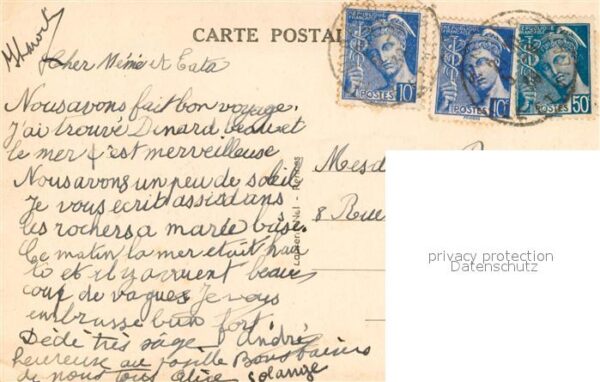 CARTE POSTALE
Cher Mémé et Tata
Nous avons fait bon voyage.
J'ai trouvé Dinard beau et
le mer c'est merveilleuse
Nous avons un peu de soleil
Je vous ecrit assis dans
les rochers a marée base.
Ce matin la mer etait hau
te et il y avait beau
coup de vagues Je vous
embrasse bien fort
Dédé très sage. André
heureuse au
de nous tous Alice Solange
POSTES 10c
POSTES 10c
POSTES 50c
Mesd
8 Rue
Rennes
privacy protection
Datenschutz